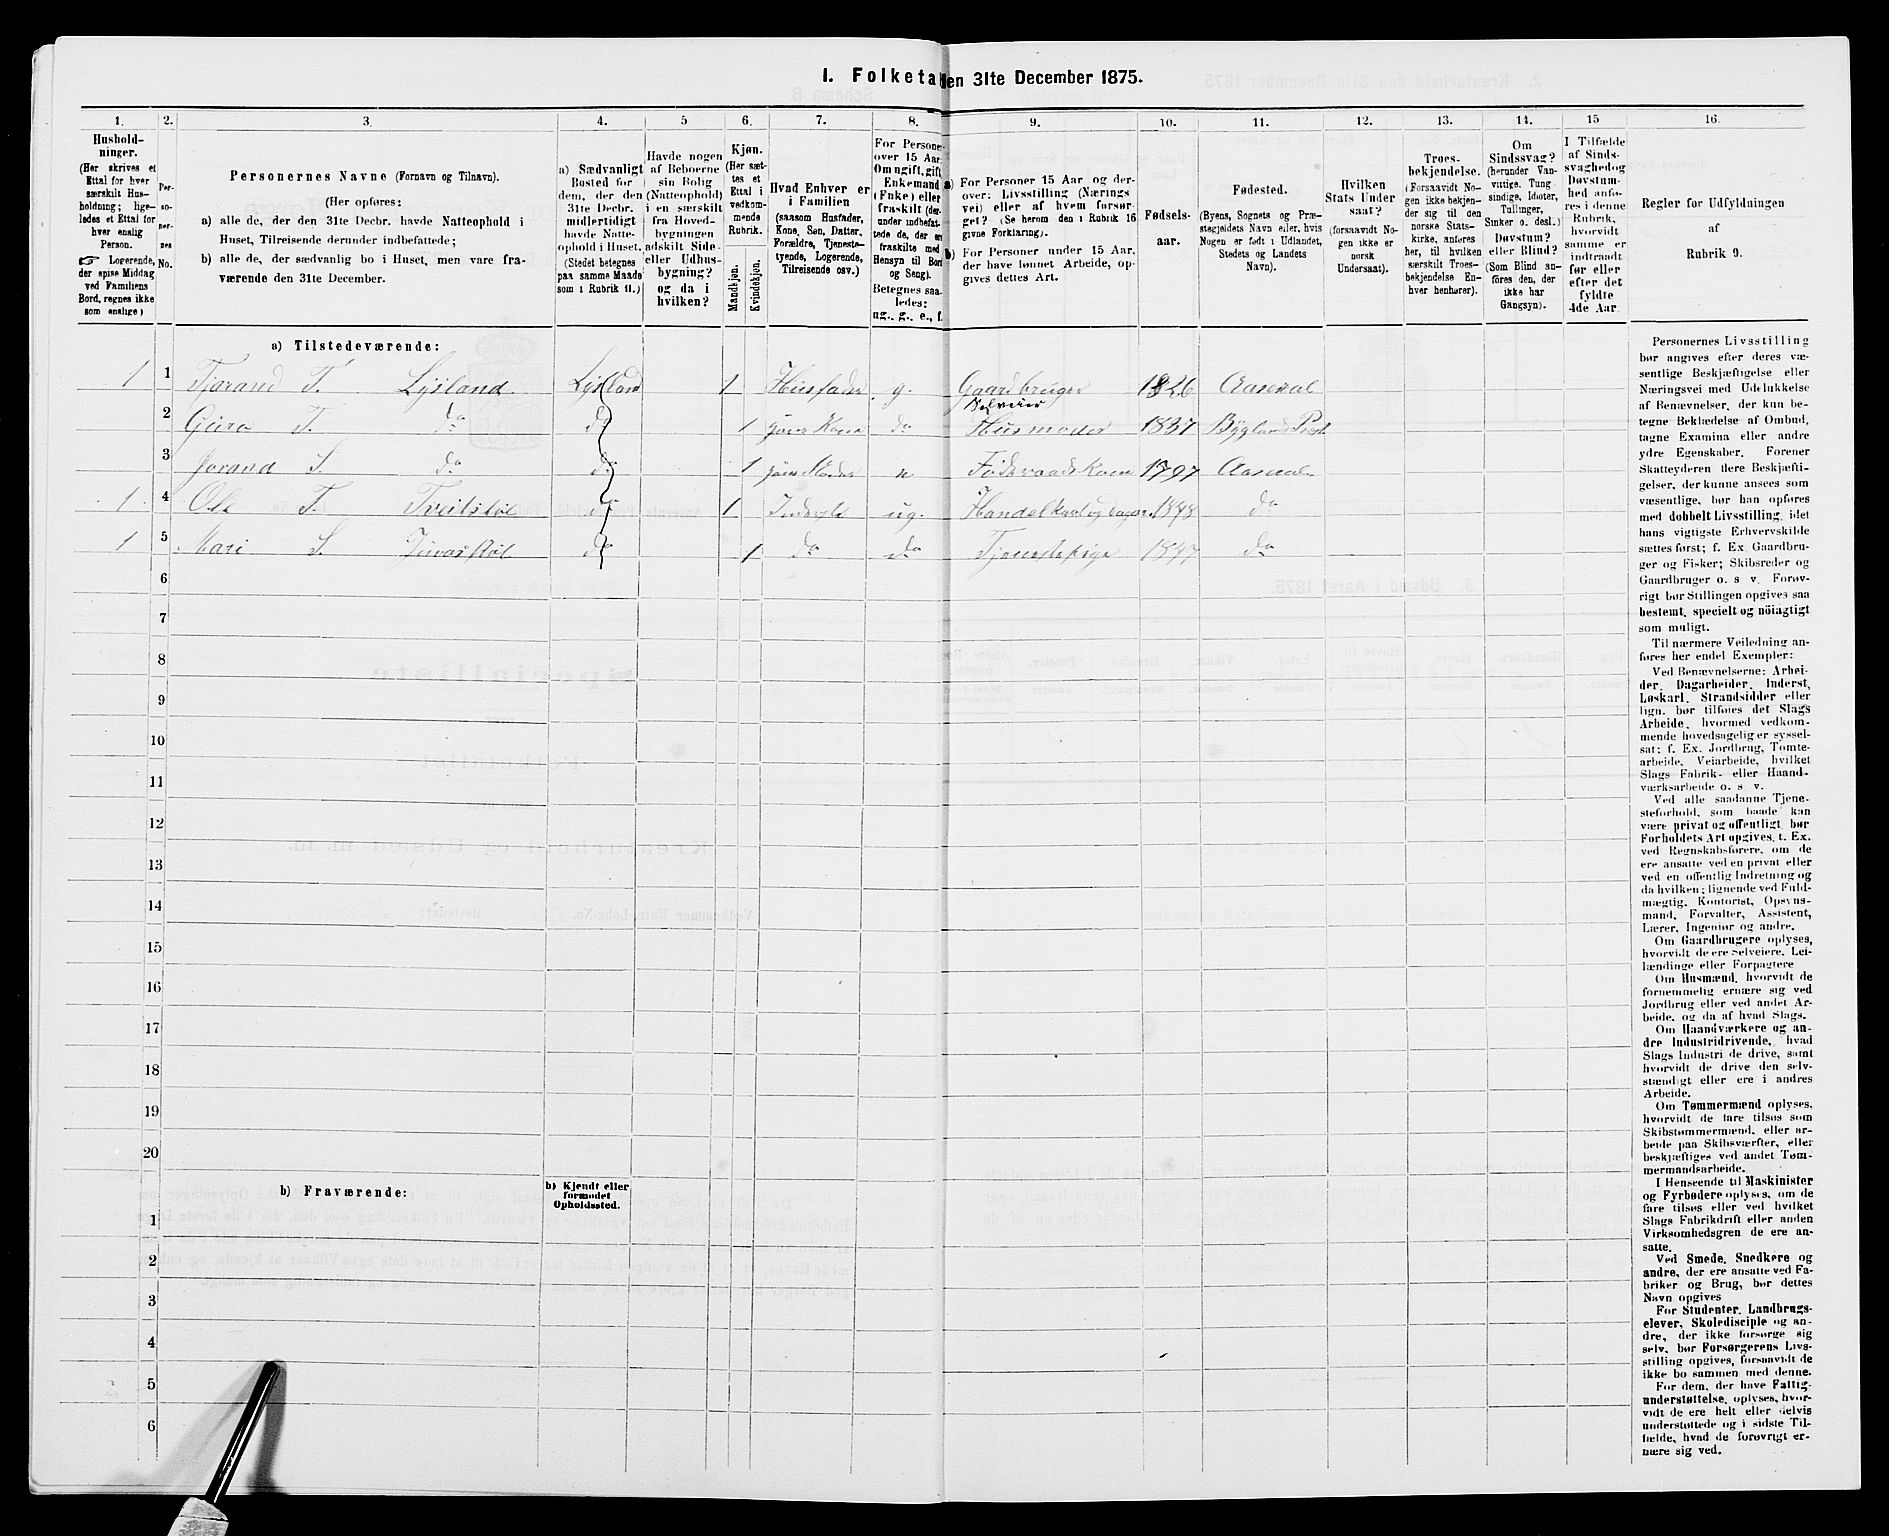 I. Folketa
den 31te December 1875.
1.
2.
3.
4.
5
6.
7.
8.
9.
10.
11.
12.
13.
14.
15
16.
Hushold-
ninger.
(Her skrives et
Ettal for hver
særskilt Hus-
holdning; lige-
ledes et Ettal for
hver enslig
Person.
☞ Logerende,
der spise Middag
ved Familiens
Bord, regnes ikke
som enslige)
Per-
so-
ner-
nes
No.
Personernes Navne (Fornavn og Tilnavn).
(Her opføres:
a) alle de, der den 31te Decbr. havde Natteophold i
Huset, Tilreisende derunder indbefattede;
b) alle de, der sædvanlig bo i Huset, men vare fra-
værende den 31te December.
a) Sædvanligt
Bosted for
dem, der den
31te Decbr.
midlertidigt
havde Natte-
ophold i Huset.
(Stedet betegnes
paa samme Maade
som i Rubrik 11.)
Havde nogen
af Beboerne
sin Bolig
(Natteophold)
i en særskilt
fra Hoved-
bygningen
adskilt Side-
eller Udhus-
bygning?
og da i
hvilken?
Kjøn.
(Her sæt-
tes et
Ettal i
vedkom-
mende
Rubrik.
Mandkjøn.
Kvindekjøn.
Hvad Enhver er
i Familien
(saasom Husfader,
Kone, Søn, Datter,
Forældre, Tjeneste-
tyende, Logerende,
Tilreisende osv.)
For Persone-
over 15 Aar:
Om ugift, gift,
Enkemand
(Enke) eller
fraskilt (der-
under indbefat-
tede de, der er
fraskilte med
Hensyn til Bord
og Seng).
Betegnes saa-
ledes:
ug., g., e., f.
a) For Personer 15 Aar og der-
over: Livsstilling (Nærings
vei) eller af hvem forsør-
get? (Se herom den i Rubrik 16
givne Forklaring).
b) For Personer under 15 Aar,
der have lønnet Arbeide, op-
gives dettes Art.
Fødsels-
aar.
Fødested.
(Byens, Sognets og Præ-
stegjeldets Navn eller, hvis
Nogen er født i Udlandet,
Stedets og Landets
Navn).
Hvilken
Stats Under
saat?
(forsaavidt No-
gen ikke er
norsk
Undersaat).
Troes-
bekjendelse.
(Forsaavidt No-
gen ikke bekjen-
der sig til den
norske Stats-
kirke, anføres
her, til hvilken
særskilt Troes-
bekjendelse En-
hver henhører).
Om
Sindssvag?
(herunder Van-
vittige, Tung
sindige, Idioter,
Tullinger,
Sinker o. desl.)
Døvstum?
eller Blind?
(Som Blind an-
føres den, der
ikke har
Gangsyn).
I Tilfælde
af Sinds-
svaghed og
Døvstum-
hed anfø-
res i denne
Rubrik,
hvorvidt
samme er
indtraadt
før eller
efter det
fyldte
4de Aar.
Regler for Udfyldningen
af
Rubrik 9.
a) Tilstedeværende:
1 1 Tjorand T. Lysland Lysland 1 Husfader g. Gaardbruger Selveier 1826 Aaseral
2 Giero T. do do 1 hans Kone do Husmoder 1837 Byglands Præst.
3 Jorand S. do do 1 Moder Føderaadskone 1797 Aaseral
1 4 Ole T. Tveitstøl do 1 Inderste ug. Handelkarl og 1848 do
1 5 Mari S. do 1 do do Tjenestepige 1847 do
6
7
8
9
10
11
12
13
14
15
16
17
18
19
20
b) Fraværende:
b) Kjendt eller
formodet
Opholdssted.
1
2
3
4
5
6
Personernes Livsstilling
bør angives efter deres væ-
sentlige Beskjæftigelse eller
Næringsvei med Udelukkelse
af Benævnelser, der kun be-
tegne Beklædelse af Ombud,
tagne Examina eller andre
ydre Egenskaber. Forener
Skatteyderen flere Beskjæfti-
gelser, der kunne ansees som
væsentlige, bør han opføres
med dobbelt Livsstilling, idet
hans vigtigste Erhvervskilde
sættes først; f. Ex. Gaardbru-
ger og Fisker; Skibsreder og
Gaardbruger o. s v. Forøv-
rigt bør Stillingen opgives saa
bestemt, specielt og nöiagtigt
som muligt.
Til nærmere Veiledning an-
føres her endel Exempler:
Ved Benævnelserne: Arbei-
der, Dagarbeider, Inderst,
Løskarl, Strandsidder eller
lign. bør tilføies det Slags
Arbeide, hvormed vedkom-
mende hovedsagelig er syssel-
sat; f. Ex. Jordbrug, Tomte-
arbeide, Veiarbeide, hvilket
Slags Fabrik- eller Haand-
værksarbeide o. s. v.
Ved alle saadanne Tjene-
steforhold, som baade kan
være privat og offentligt, bør
Forholdets Art opgives, t. Ex.
ved Regnskabsførere, om de
ere ansatte ved en privat eller
ved en offentlig Indretning og
da hvilken; lignende ved Fuld-
mægtig, Kontorist, Opsyns-
mand, Forvalter, Assistent,
Lærer, Ingeniør og andre.
Om Gaardbrugere oplyses,
hvorvidt de ere Selveiere, Lei-
lændinge eller Forpagtere
Om Husmænd, hvorvidt de
fornemmelig ernære sig ved
Jordbrug eller ved andet Ar-
beide, og da af hvad Slags.
Om Haandværkere og an-
dre Industridrivende, hvad
Slags Industri de drive, samt
hvorvidt de drive den selv-
stændigt eller ere i andres
Arbeide.
Om Tømmermænd oplyses,
hvorvidt de fare tilsøs som
Skibstømmermænd, eller ar-
beide paa Skibsværfter, eller
beskjæftiges ved andet Tøm-
mermandsarbeide.
I Henseende til Maskinister
og Fyrbødere oplyses, om de
fare tilsøs eller ved hvilket
Slags Fabrikdrift eller anden
Virksomhedsgren de ere an-
satte.
Ved Smede, Snedkere og
andre, der ere ansatte ved Fa-
briker og Brug, bør dettes
Navn opgives
For Studenter, Landbrugs-
elever, Skoledisciple og an-
dre, der ikke forsørge sig
selv, bør Forsørgerens Livs-
stilling opgives, forsaavidt de
ikke bo sammen med denne.
For dem, der have Fattig-
understøttelse, oplyses, hvor-
vidt de ere helt eller delvis
understøttede og i sidste Til-
fælde, hvad de forøvrigt er-
nære sig ved.